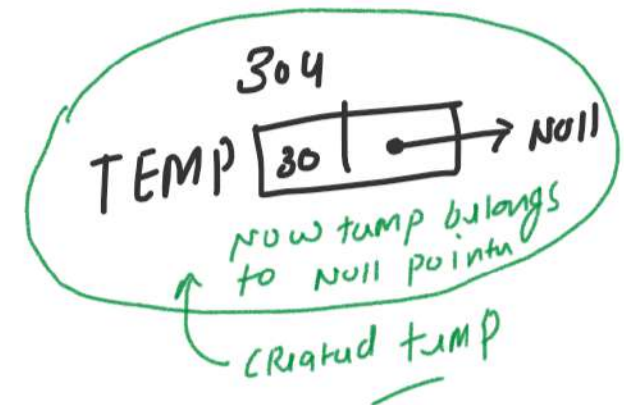 304
TEMP 30 NUll
NOW temp belongs
to NUll pointer
CReated temp